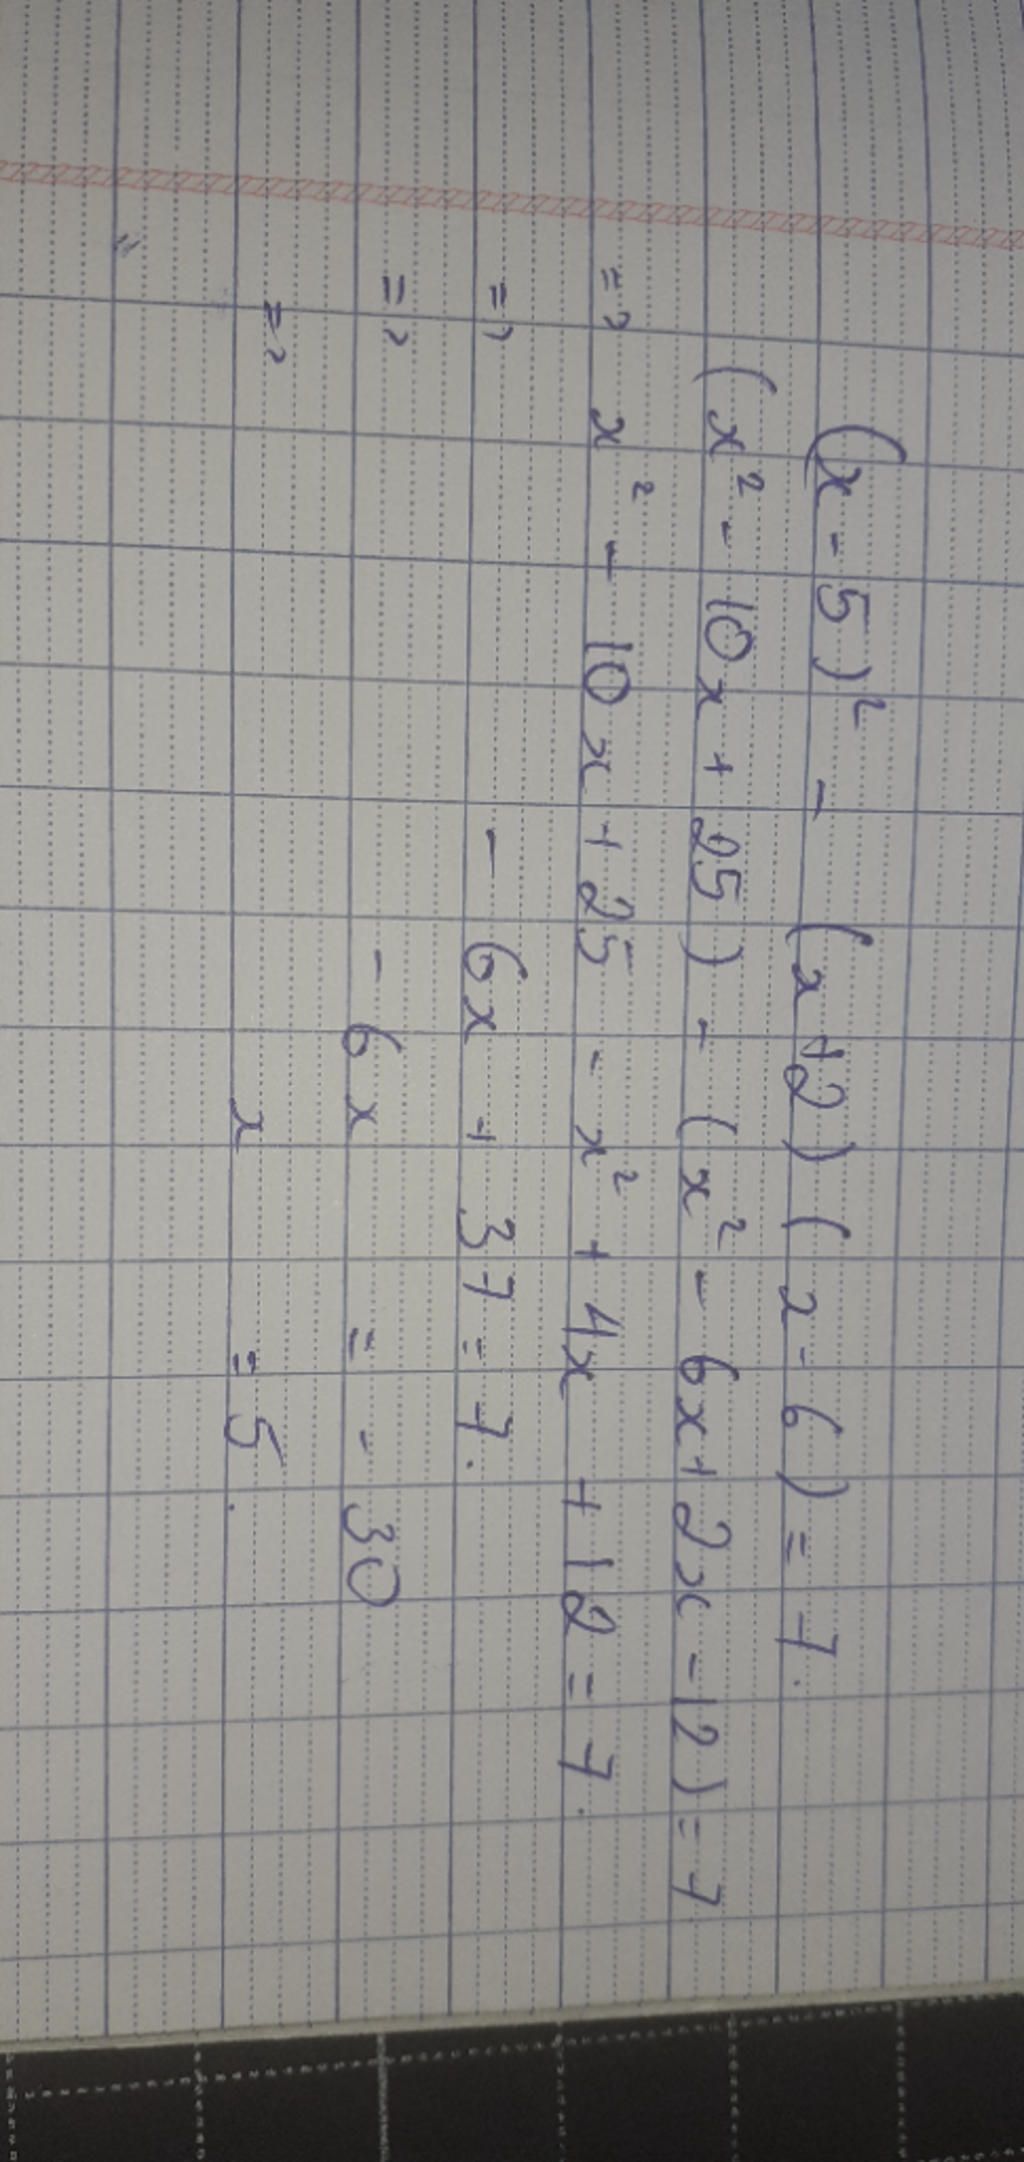 (x - 5)² - (x + 2) (x - 6) = 7.
(x² - 10x + 25) - (x² - 6x + 2x - 12) = 7
=> x² - 10x + 25 - x² + 4x + 12 = 7.
=> - 6x + 37 = 7.
=> - 6x = - 30
=> x = 5.